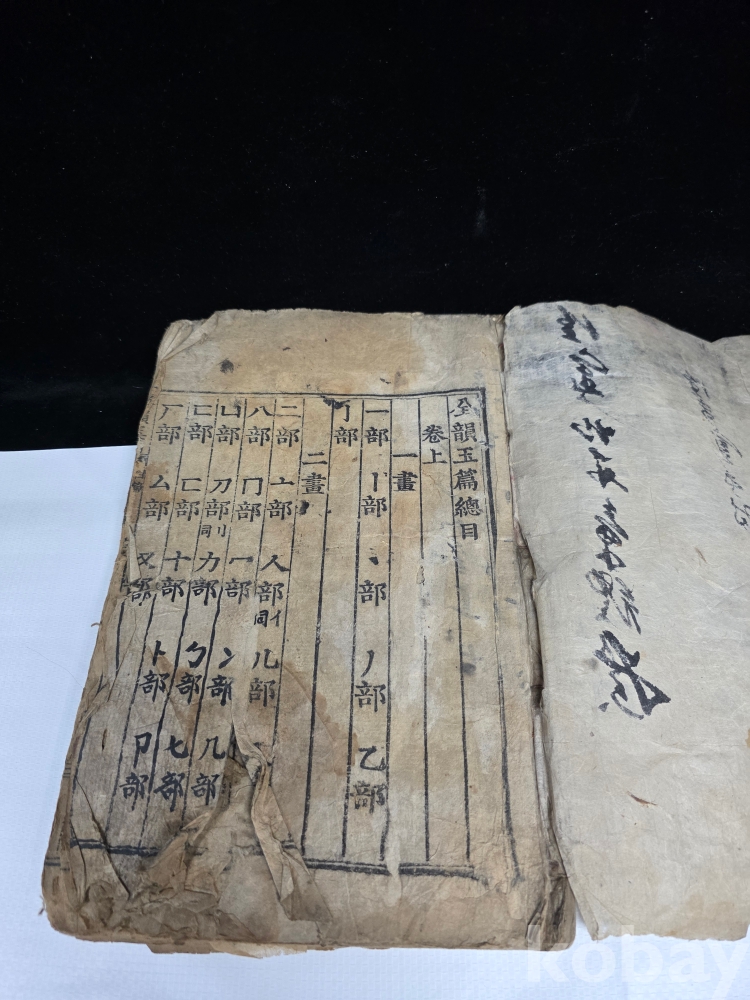 全韻玉篇總目
卷上
一畫
一部 丨部 丶部 丿部 乙部
亅部
二畫
二部 亠部 人部 亻同 儿部
八部 冂部 冖部 冫部 几部
凵部 刀部 刂同 力部 勹部 匕部
匚部 匸部 十部 卜部 卩部
厂部 厶部 又部
kobay